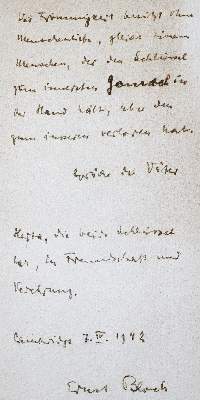 Wer Frömmigkeit besitzt ohne
Menschenliebe, gleicht einem
Menschen, der den Schlüssel
zum innersten Gemach in
der Hand hält, aber den
zum äusseren verloren hat.
Sprüche der Väter
die beide Schlüssel
hat, in Freundschaft und
Verehrung.
Cambridge 7. 1942
Ernst Bloch